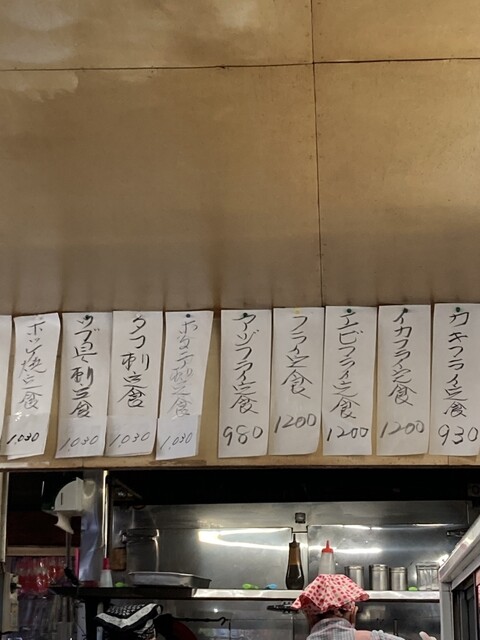 カキフライ定食
930
イカフライ定食
1200
エビフライ定食
1200
フライ定食
1200
アジフライ定食
980
ホタテ刺定食
1,030
タコ刺定食
1,030
刺定食
1,030
ホッケ焼定食
1,030